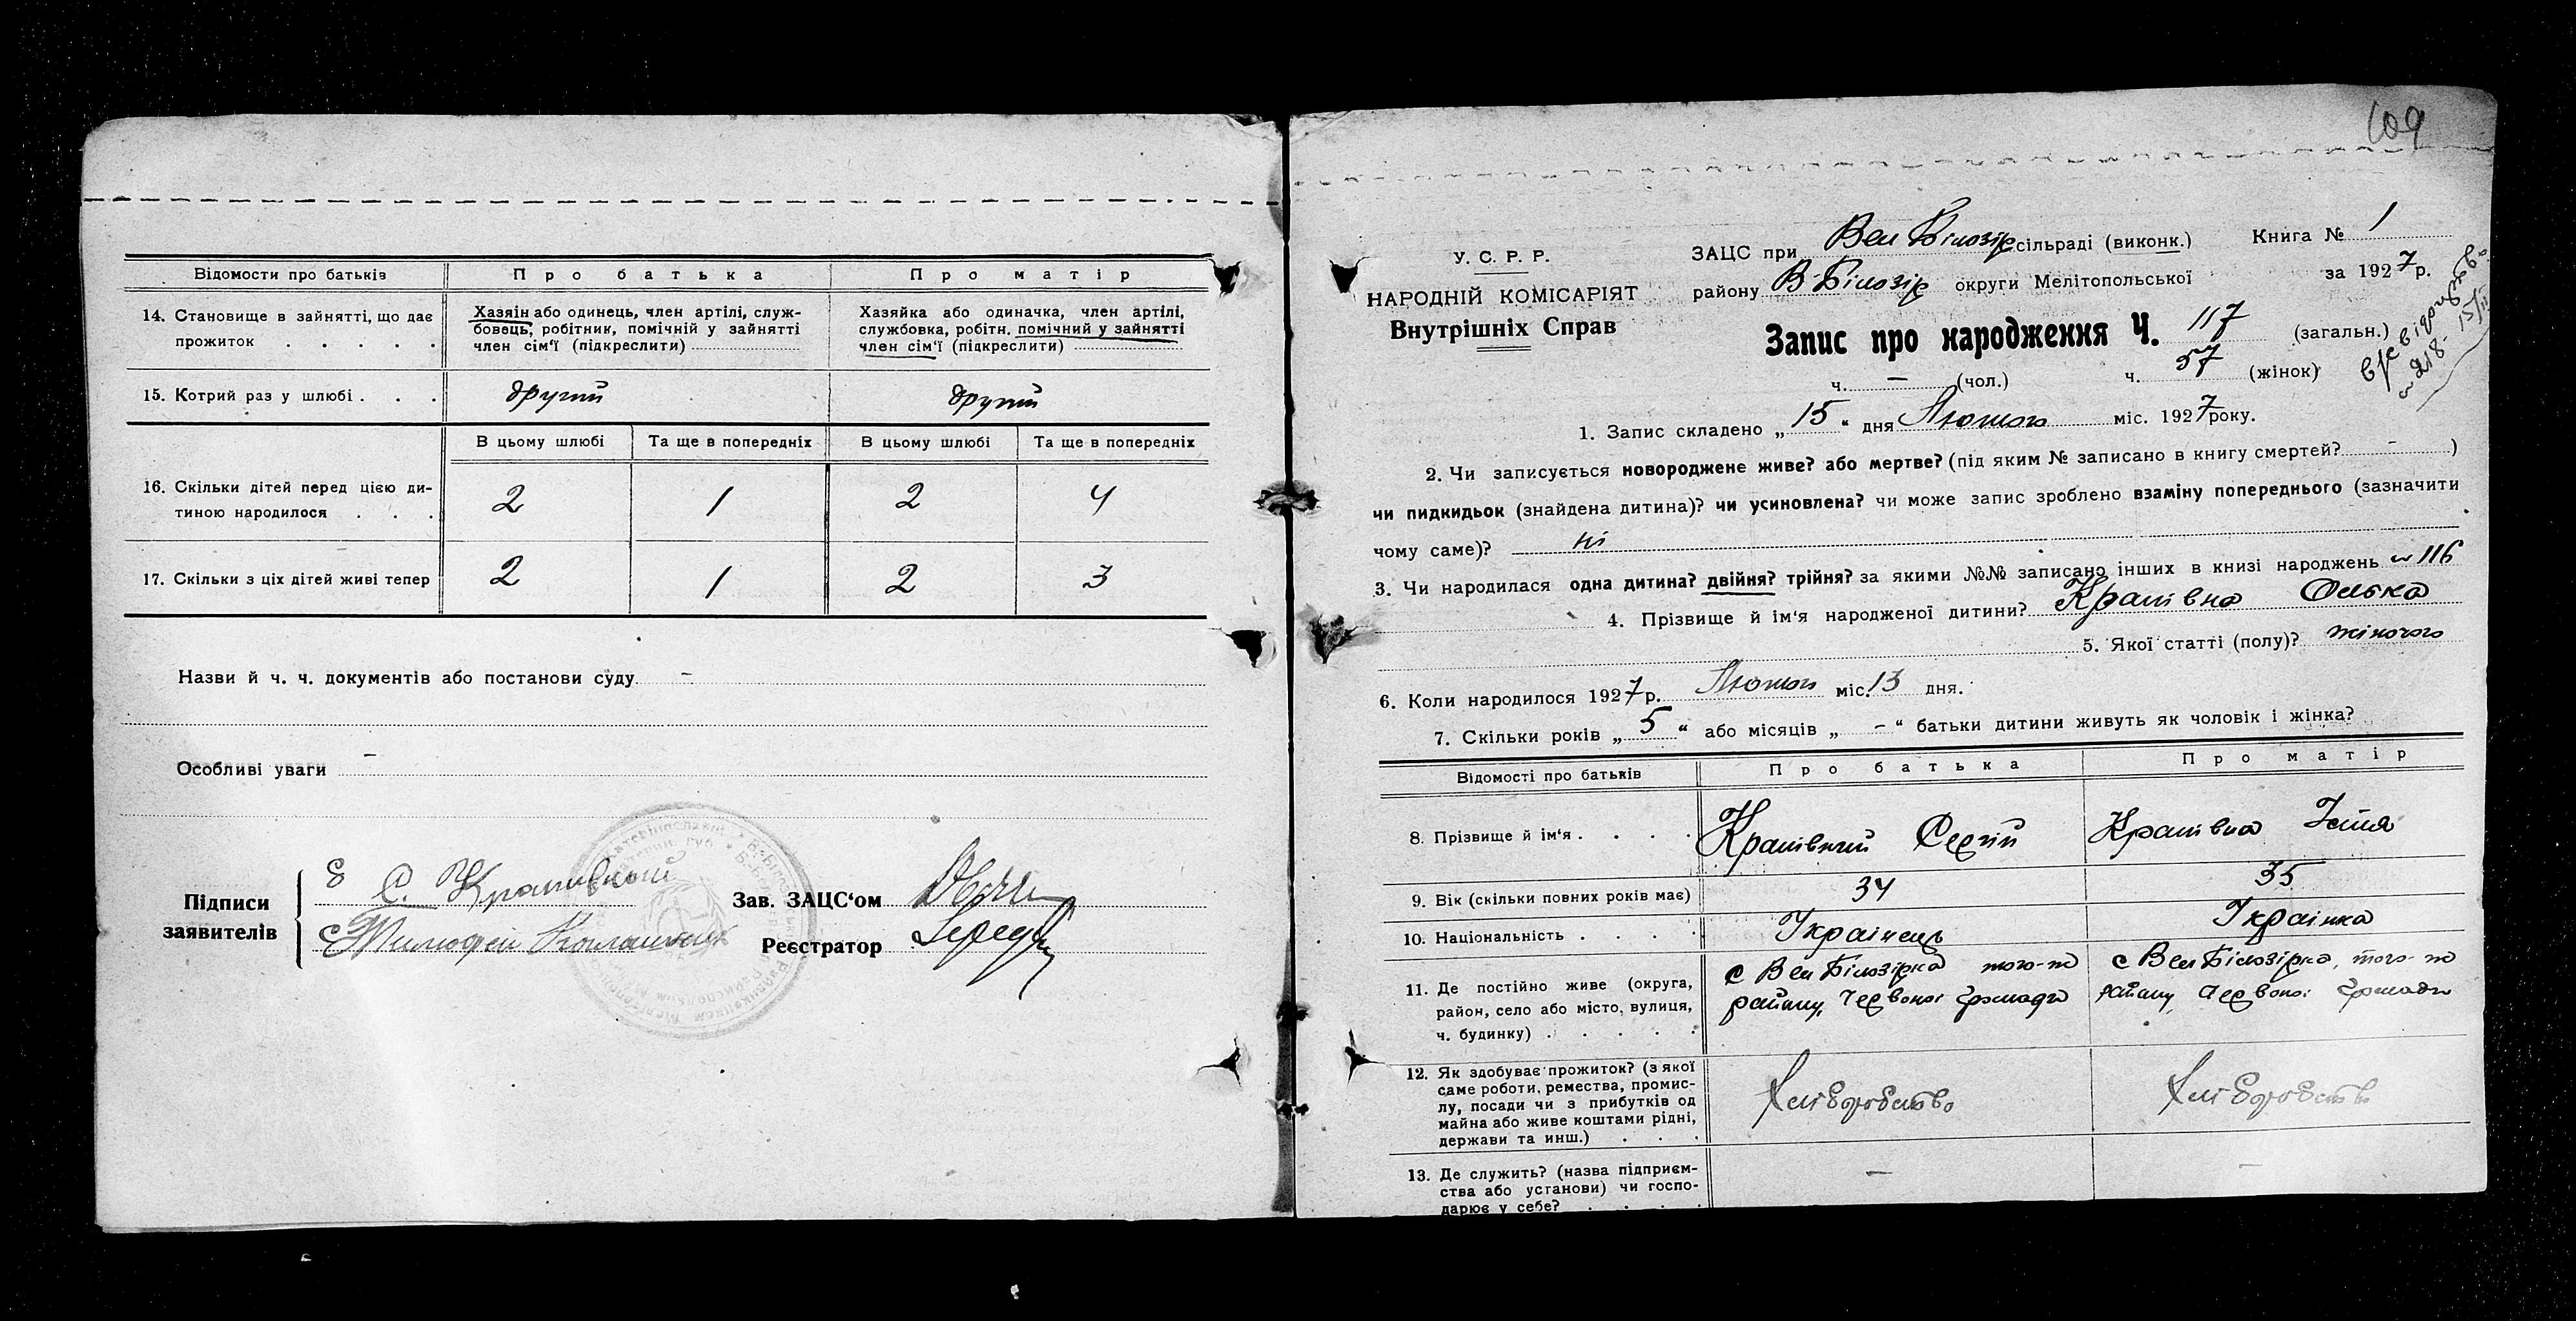 Відомости про батьків
Про батька
Про матір
14. Становище в зайнятті, що дає прожиток . . . . .
Хазяїн або одинець, член артілі, служ-
бовець, робітник, помічній у зайнятті
член сім'ї (підкреслити)
Хазяйка або одиначка, член артілі,
службовка, робітн. помічний у зайнятті
член сім'ї (підкреслити)
15. Котрий раз у шлюбі . . .
другий
другий
В цьому шлюбі
Та ще в попередніх
В цьому шлюбі
Та ще в попередніх
16. Скільки дітей перед цією ди-
тиною народилося . . .
2
1
2
4
17. Скільки з ціх дітей живі тепер
2
1
2
3
Назви й ч. ч. документів або постанови суду –
Особливі уваги –
Підписи
заявителів
С. Крапивный
Зав. ЗАЦС'ом
Реєстратор
109
У. С. Р. Р.
НАРОДНІЙ КОМІСАРІЯТ
Внутрішніх Справ
ЗАЦС при Вел Білозір сільраді (виконк.)
Книга № 1
району В-Білозір округи Мелітопольської
за 1927 р.
Запис про народження Ч. 117 (загальн.)
ч. – (чол.) ч. 57 (жінок)
218. 15/II
1. Запис складено „15“ дня Лютого міс. 1927 року.
2. Чи записується новороджене живе? або мертве? (під яким № записано в книгу смертей? – )
чи пидкидьок (знайдена дитина)? чи усиновлена? чи може запис зроблено взаміну попереднього (зазначити
чому саме)? ні
3. Чи народилася одна дитина? двійня? трійня? за якими №№ записано інших в книзі народжень 116
4. Прізвище й ім'я народженої дитини? Крапівна Олька
5. Якої статті (полу)? жіночого
6. Коли народилося 1927 р. Лютого міс. 13 дня.
7. Скільки років „5“ або місяців „–“ батьки дитини живуть як чоловік і жінка?
Відомості про батьків
Про батька
Про матір
8. Прізвище й ім'я . . . .
Крапівний Сергій
Крапівна
9. Вік (скільки повних років має)
34
35
10. Національність . . . .
Українець
Українка
11. Де постійно живе (округа,
район, село або місто, вулиця,
ч. будинку) . . . . .
с Вел Білозірка того-ж
району, Червоної Громади
с Вел Білозірка, того-ж
району, Червоної Громади
12. Як здобуває прожиток? (з якої
саме роботи, ремества, промис-
лу, посади чи з прибутків од
майна або живе коштами рідні,
держави та инш.) . . .
Хліборобство
Хліборобство
13. Де служить? (назва підприєм-
ства або установи) чи госпо-
дарює у себе? . . . .
–
–